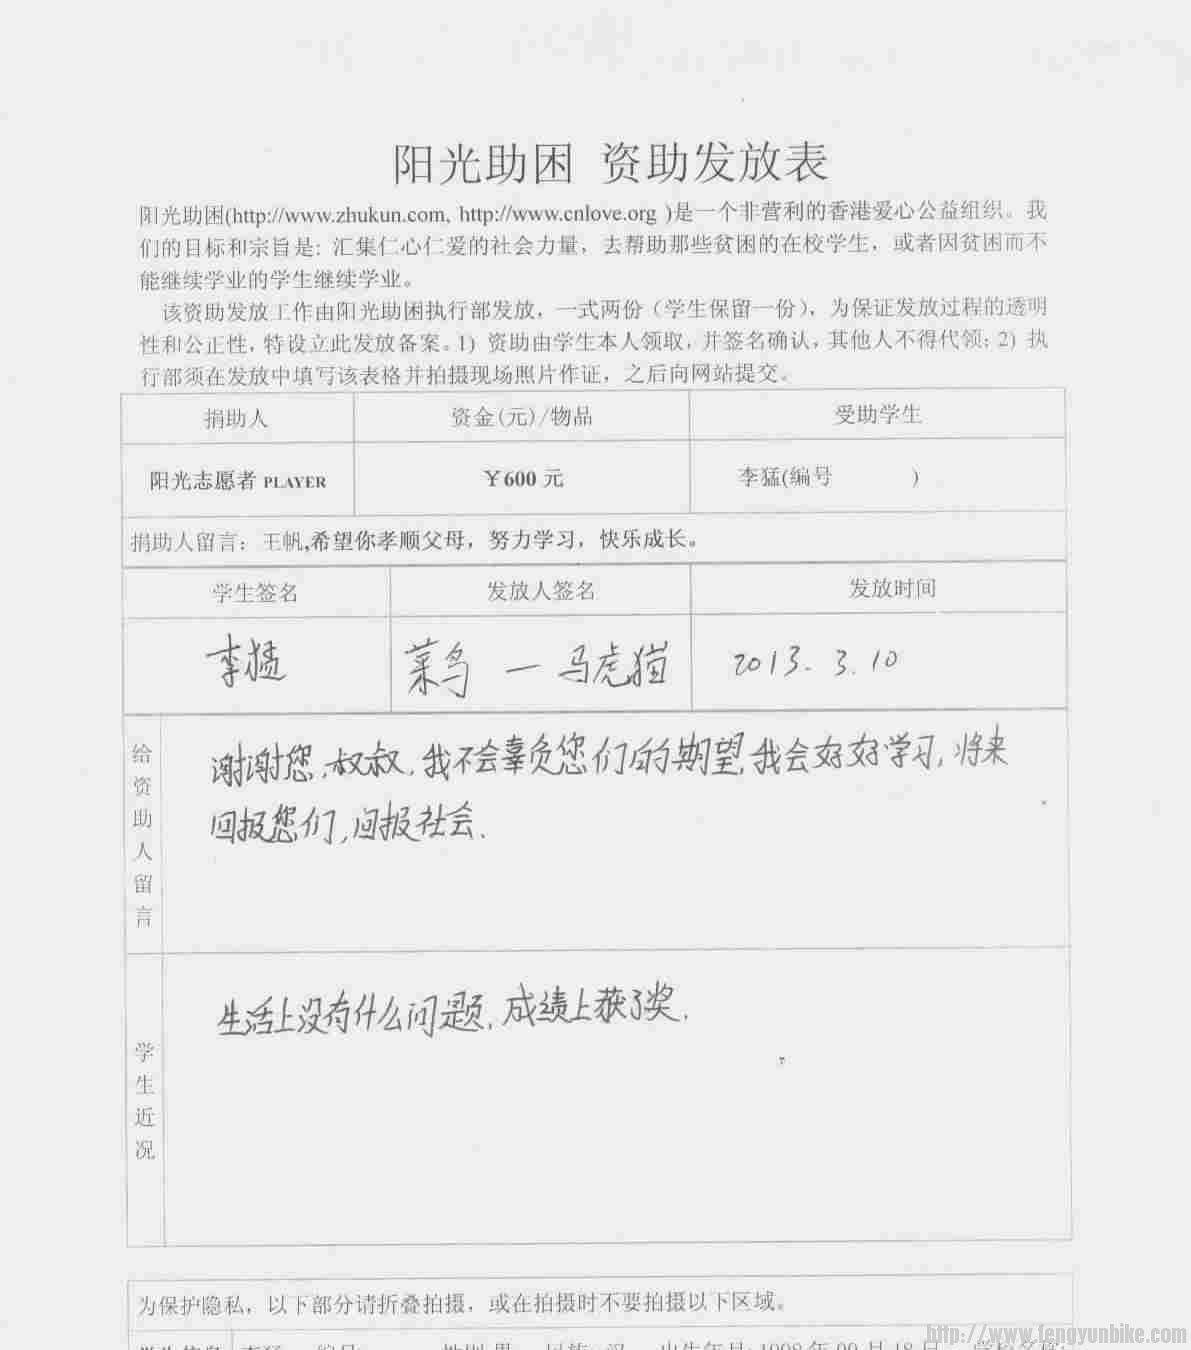 阳光助困 资助发放表
阳光助困(http://www.zhukun.com, http://www.cnlove.org )是一个非营利的香港爱心公益组织。我
们的目标和宗旨是: 汇集仁心仁爱的社会力量，去帮助那些贫困的在校学生，或者因贫困而不
能继续学业的学生继续学业。
该资助发放工作由阳光助困执行部发放，一式两份（学生保留一份），为保证发放过程的透明
性和公正性，特设立此发放备案。1) 资助由学生本人领取，并签名确认，其他人不得代领; 2) 执
行部须在发放中填写该表格并拍摄现场照片作证，之后向网站提交。
捐助人 资金(元)/物品 受助学生
阳光志愿者 PLAYER ￥600 元 李猛(编号 )
捐助人留言：王帆,希望你孝顺父母，努力学习，快乐成长。
学生签名 发放人签名 发放时间
李猛 菜鸟 — 马虎猫 2013. 3. 10
给资助人留言
谢谢您,叔叔,我不会辜负您们的期望,我会好好学习,将来
回报您们,回报社会.
学生近况
生活上没有什么问题,成绩上获了奖.
为保护隐私，以下部分请折叠拍摄，或在拍摄时不要拍摄以下区域。
http://www.fengyunbike.com